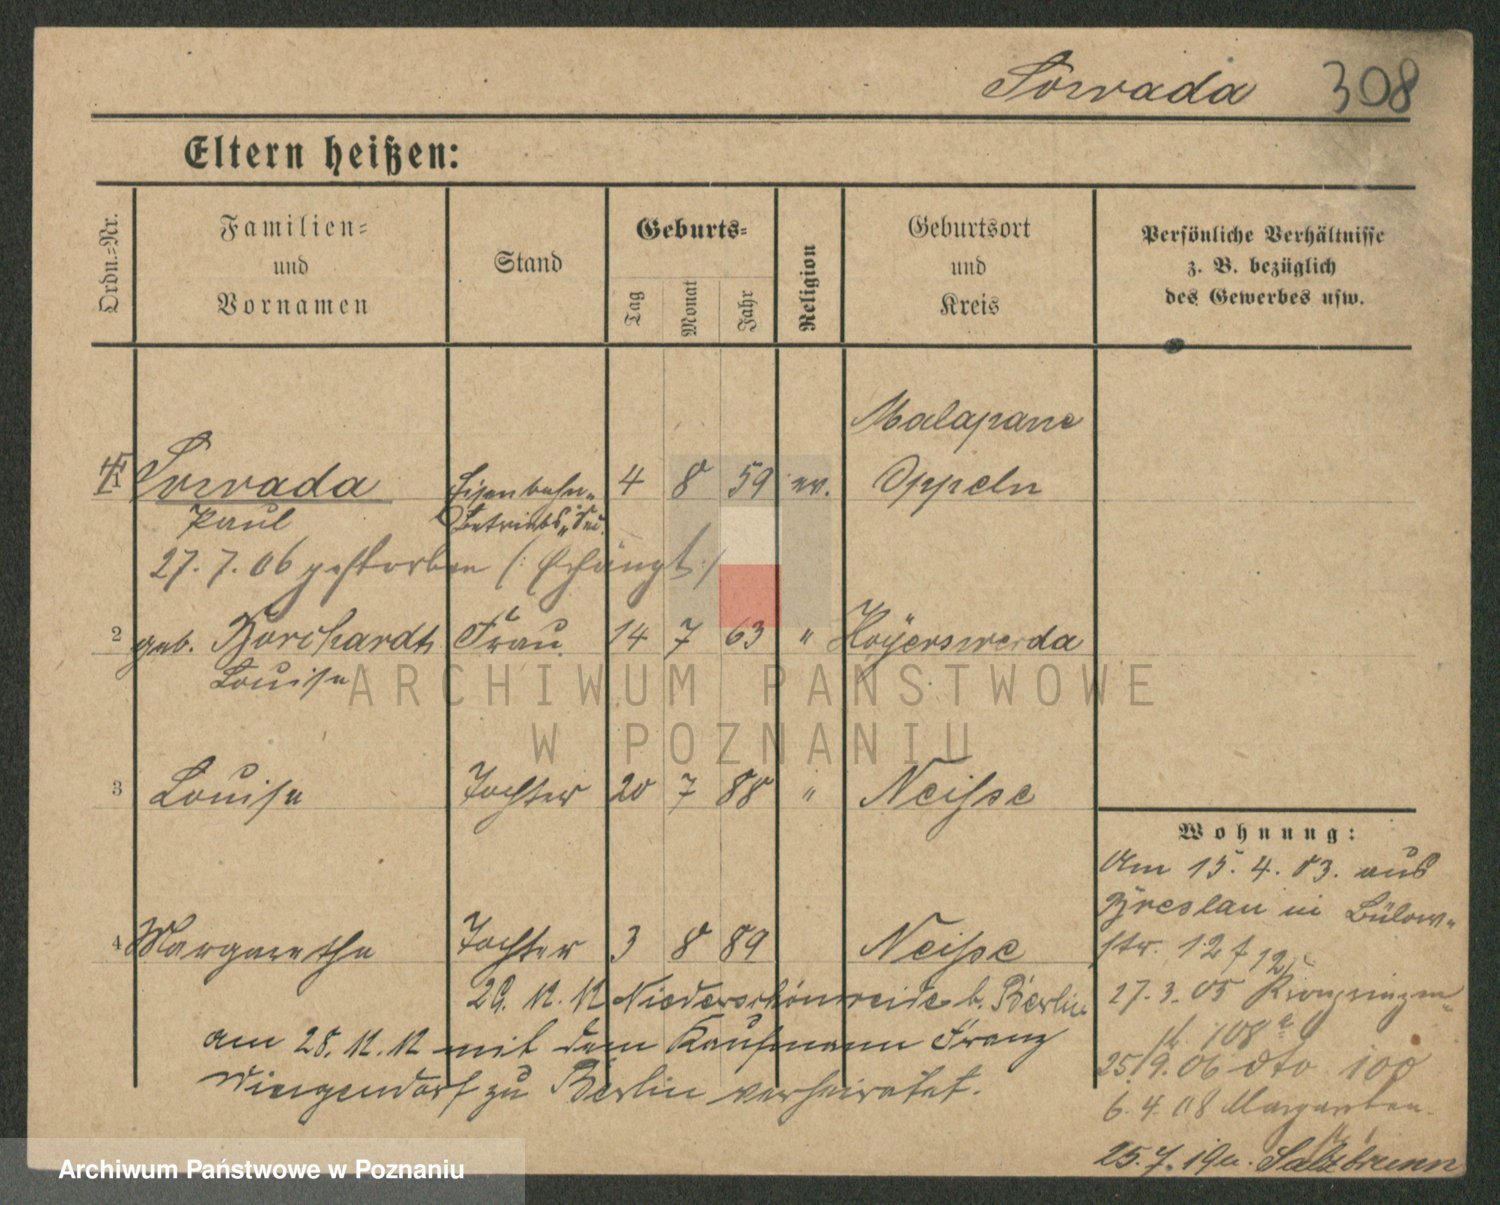 Sowada 308
Eltern heißen:
Ordn.-Nr.
Familien-
und
Vornamen
Stand
Geburts-
Tag
Monat
Jahr
Religion
Geburtsort
und
Kreis
Persönliche Verhältnisse
z. B. bezüglich
des Gewerbes usw.
Malapane
Sowada Eisenbahn- 4 8 59 ev. Oppeln
Paul Betriebs-
27. 7. 06 gestorben (: Erhängt :)
2 geb. Borchardt Frau 14 7 63 " Hoyerswerda
Louise
3 Louise Tochter 20 7 88 " Neisse
4 Margarethe Tochter 3 8 89 Neisse
29. 12. 12 Niederschönweide b. Berlin
am 28. 12. 12 mit dem Kaufmann Franz
zu Berlin verheiratet.
Wohnung:
Am 15. 4. 03. aus
Breslau in Bülow-
str. 12
27. 3. 05 Kronprinzen-
str. 108a
25/9. 06 dto 100
6. 4. 08 Margareten
25. 7. Salzbrunn
ARCHIWUM PAŃSTWOWE
W POZNANIU
Archiwum Państwowe w Poznaniu